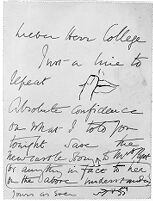 Lieber Herr College
Just a line to
repeat
Absolute Confidence
on what I told you
tonight save the
Newcastle song to
or anything in face to her
on the above understanding
Yours as Ever